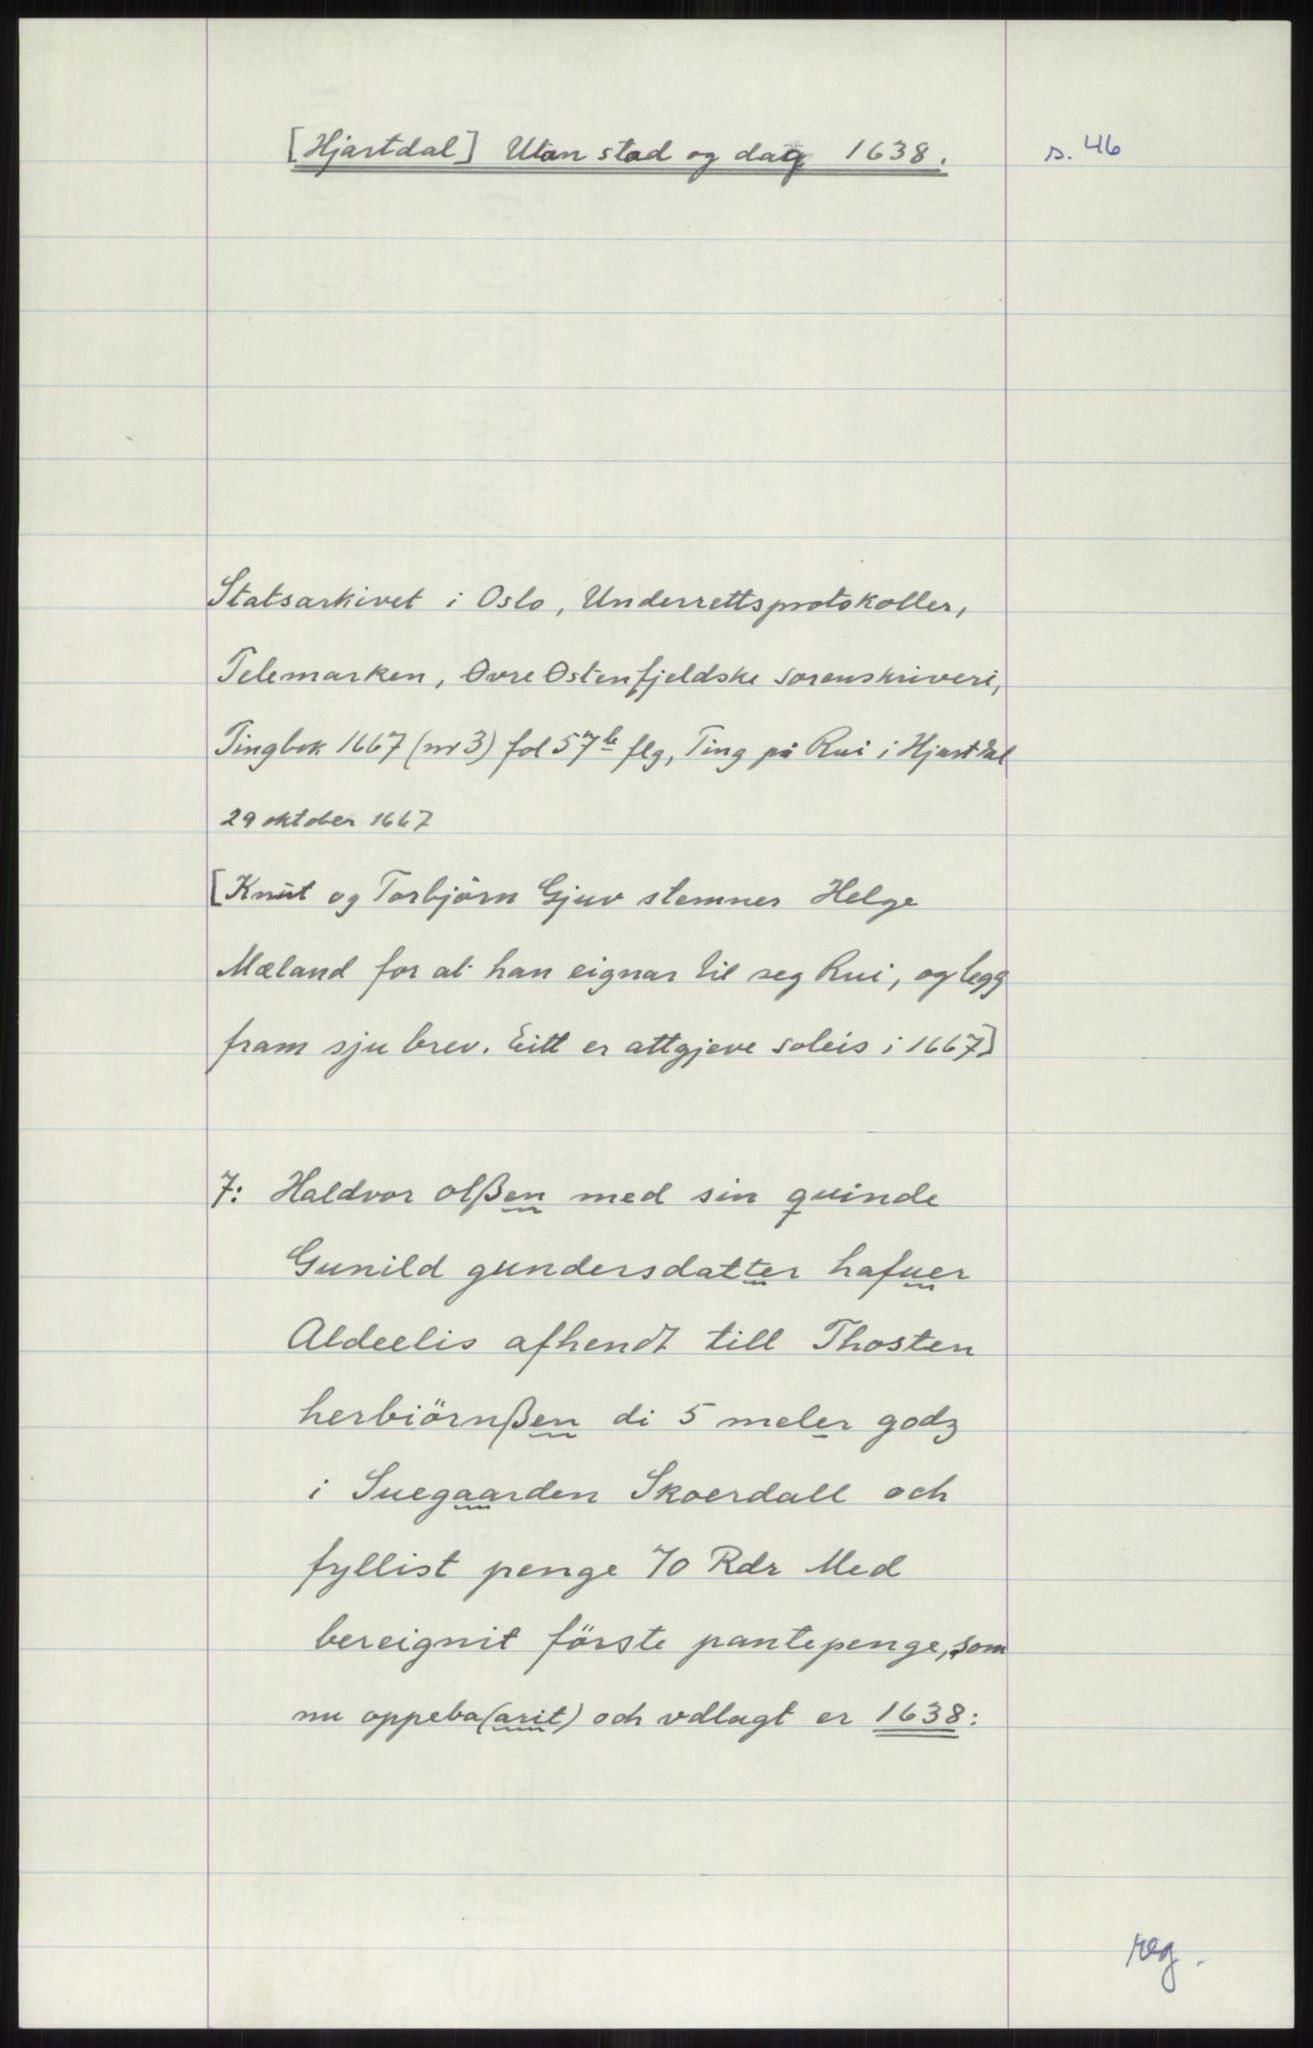 [Hjartdal] Utan stad og dag 1638.
s. 46
Statsarkivet i Oslo, Underrettsprotokoller,
Telemarken, Øvre Østenfjeldske sorenskriveri,
Tingbok 1667 (nr 3) fol 57b flg, Ting på Rui i Hjartdal
29 oktober 1667
[Knut og Torbjörn Gjuv stemner Helge
Mæland for at han eignar til seg Rui, og legg
fram sju brev. Eitt er attgjeve soleis i 1667]
7: Haldvor olßen med sin quinde
Gunild gundersdatter hafuer
Aldeelis afhendt till Thosten
herbiörnßen di 5 meler godz
i Suegaarden Skoerdall och
fyllist penge 70 Rdr Med
bereignit förste pantepenge, som
nu oppeba(arit) och vdlagt er 1638:
reg.